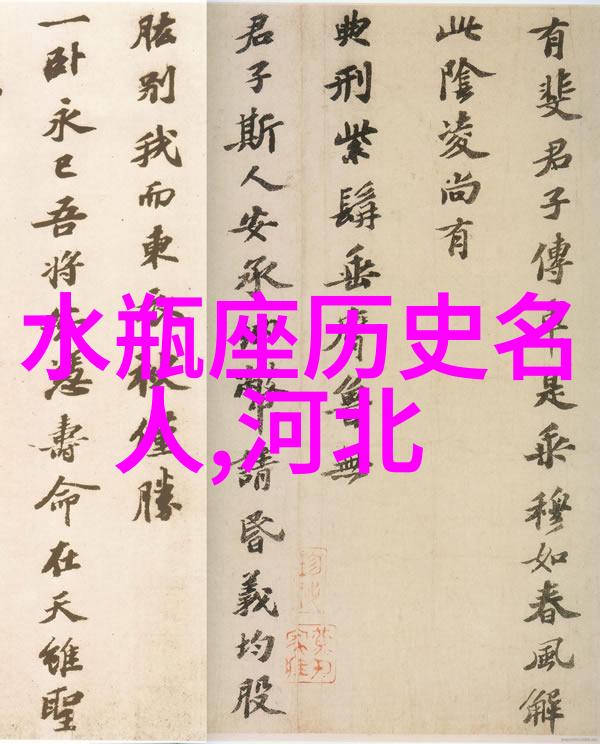 有斐君子傳是乘穆如春風解
此陰凌尚有
典刑紫髯垂膺魯無
君子斯人安承幣請昏義均股
肱別我而東袂僅勝
一臥永已吾將憑壽命在天雖聖
水瓶座历史名
人,河北